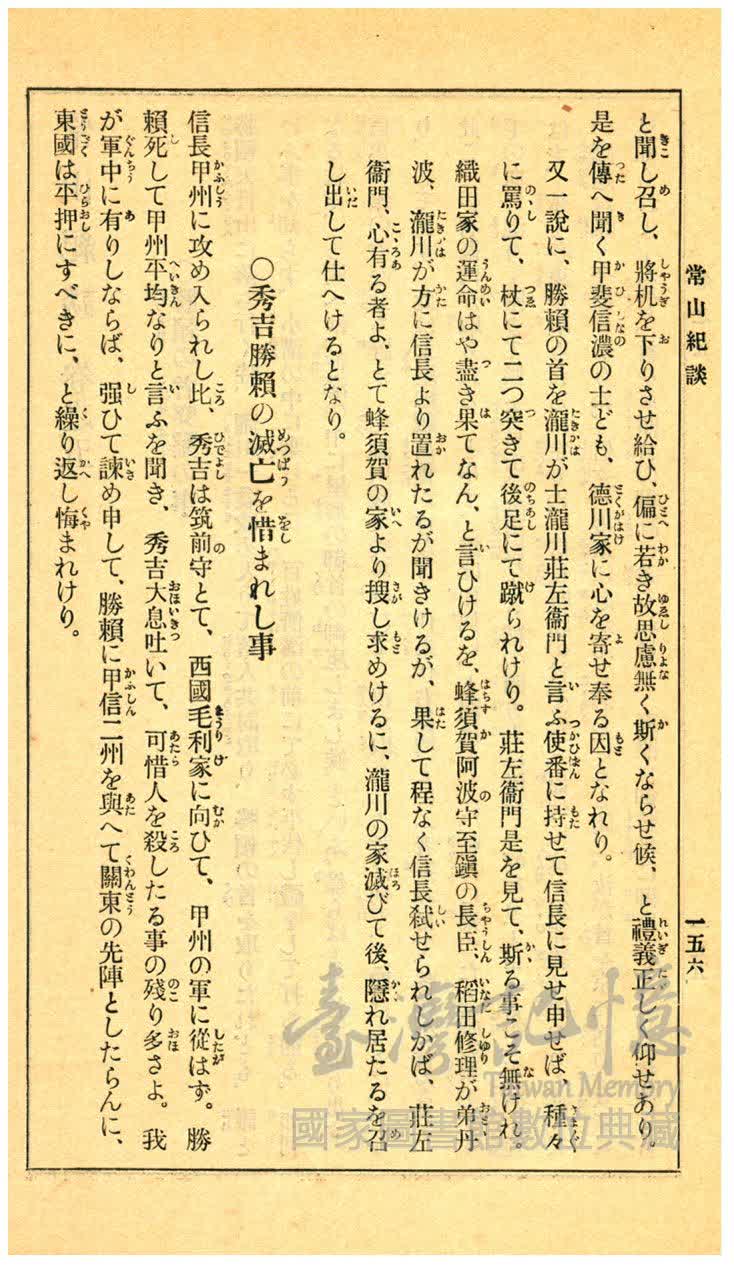 常山紀談
一五六
と聞し召し、將机を下りさせ給ひ、偏に若き故思慮無く斯くならせ候、と禮義正しく仰せあり。
是を傳へ聞く甲斐信濃の士ども、德川家に心を寄せ奉る因となれり。
又一說に、勝賴の首を瀧川が士瀧川莊左衞門と言ふ使番に持せて信長に見せ申せば、種々
に罵りて、杖にて二つ突きて後足にて蹴られけり。莊左衞門是を見て、斯る事こそ無けれ。
織田家の運命はや盡き果てなん、と言ひけるを、蜂須賀阿波守至鎭の長臣、稻田修理が弟丹
波、瀧川が方に信長より置れたるが聞きけるが、果して程なく信長弑せられしかば、莊左
衞門、心有る者よ、とて蜂須賀の家より搜し求めけるに、瀧川の家滅びて後、隱れ居たるを召
し出して仕へけるとなり。
〇秀吉勝賴の滅亡を惜まれし事
信長甲州に攻め入られし比、秀吉は筑前守とて、西國毛利家に向ひて、甲州の軍に從はず。勝
賴死して甲州平均なりと言ふを聞き、秀吉大息吐いて、可惜人を殺したる事の殘り多さよ。我
が軍中に有りしならば、强ひて諫め申して、勝賴に甲信二州を與へて關東の先陣としたらんに、
東國は平押にすべきに、と繰り返し悔まれけり。
臺灣記憶
Taiwan Memory
國家圖書館數位典藏